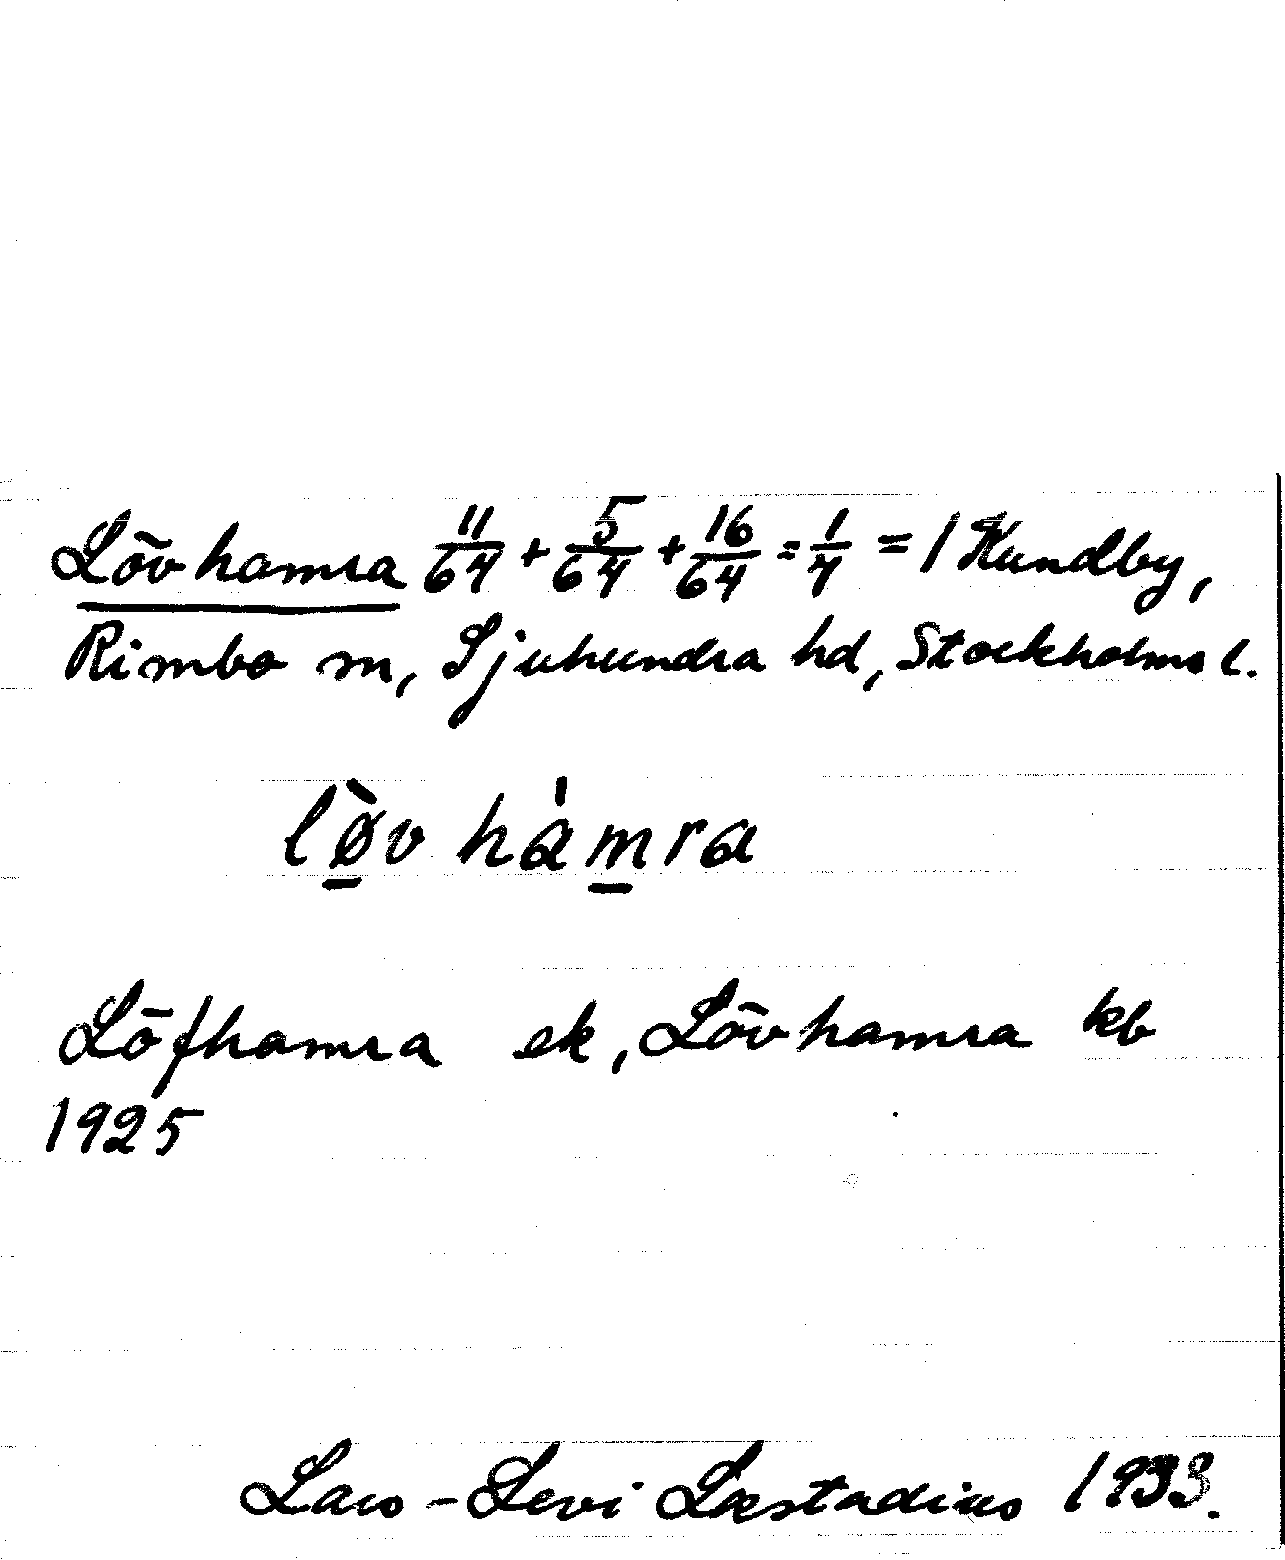 Lövhamra 11/64 + 5/64 + 16/64 = 1/4 = 1 Kundby,
Rimbo sn, Sjuhundra hd, Stockholms l.
lø̠̀v hàm̠ra
Löfhamra ek, Lövhamra kb
1925
Lars-Levi Læstadius 1933.